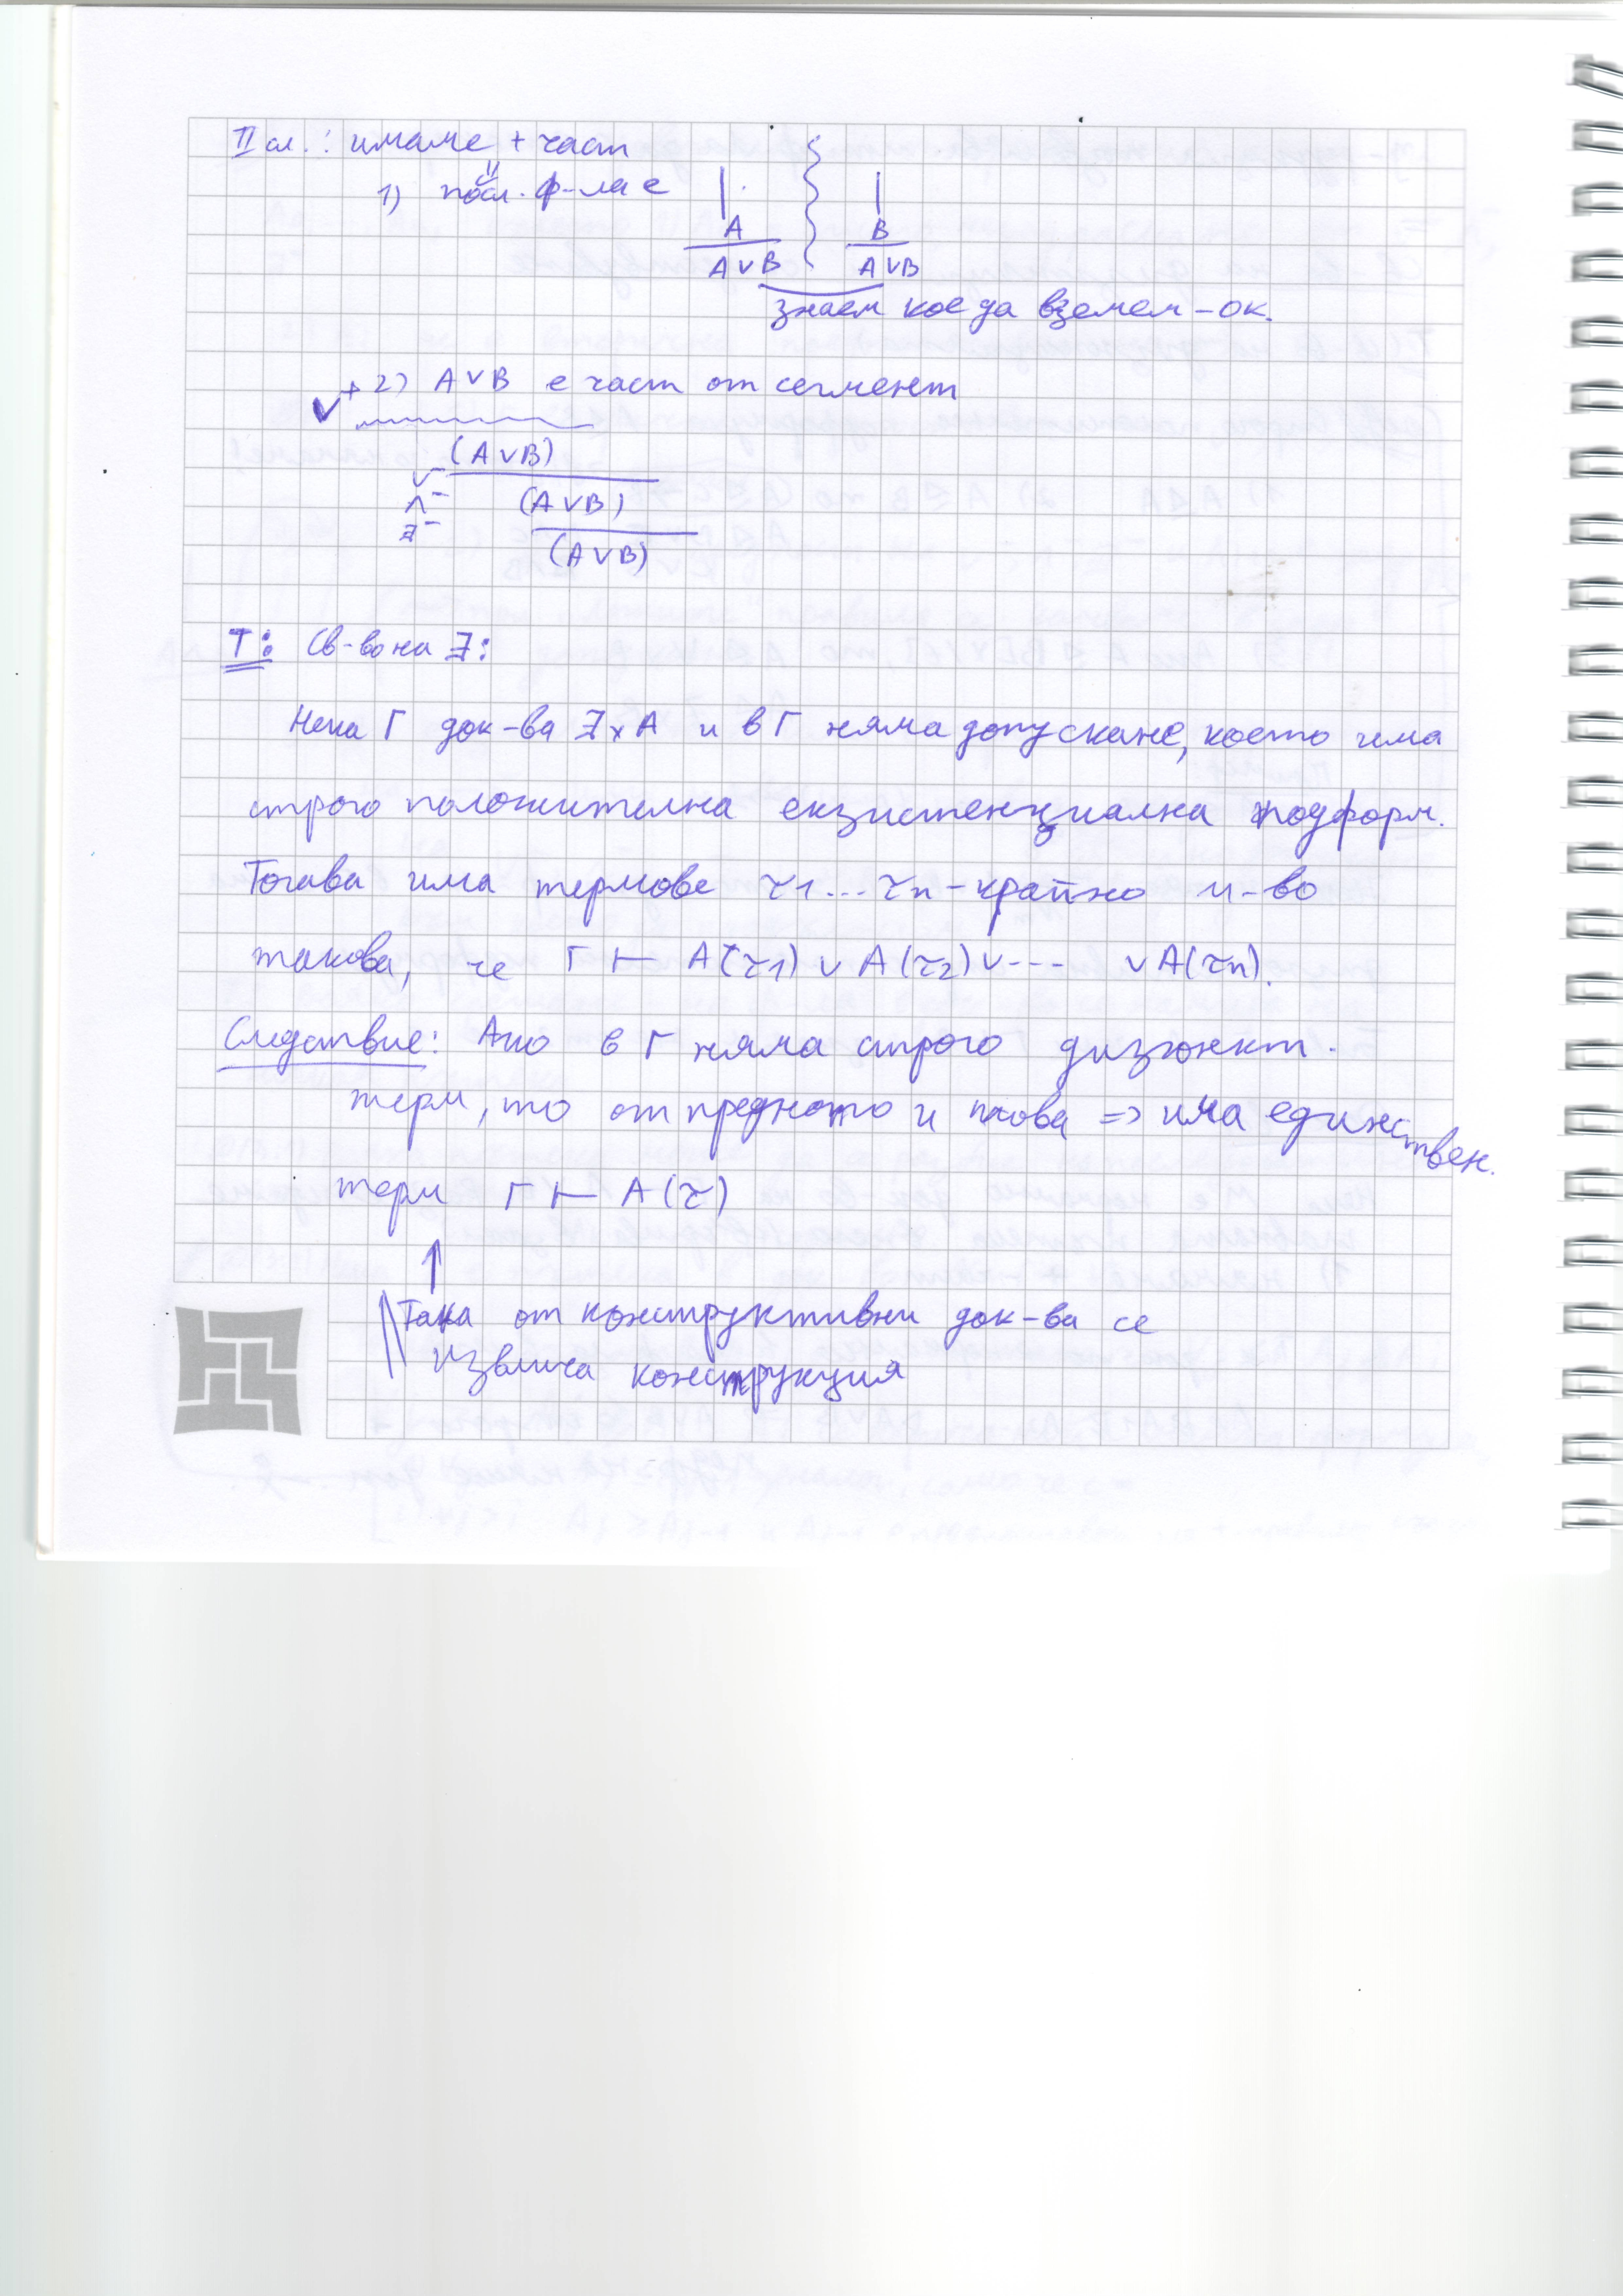 II сл.: имаме + част
⇓
1) посл. ф-ла е
A B
A∨B A∨B
знаем кое да вземем – ок.
+ 2) A∨B е част от сегмент
∨
∨⁻ (A∨B)
∧⁻ (A∨B)
∃⁻ (A∨B)
T: Св-во на ∃:
Нека Γ док-ва ∃x A и в Γ няма допускане, което има
строго положителна екзистенциална подформ.
Тогава има термове τ1...τn – крайно м-во
такова, че Γ ⊢ A(τ1) ∨ A(τ2) ∨ --- ∨ A(τn).
Следствие: Ако в Γ няма строго дизюнкт.
терм, то от предното и това => има единствен.
терм Γ ⊢ A(τ)
↑
Така от конструктивни док-ва се
извлича конструкция